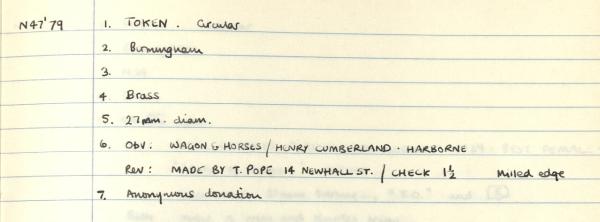 N47'79 1. TOKEN. Circular
2. Birmingham
3.
4 Brass
5. 27mm. diam.
6. Obv: WAGON & HORSES / HENRY CUMBERLAND · HARBORNE
Rev: MADE BY T. POPE 14 NEWHALL ST. / CHECK 1½ Milled edge
7. Anonymous donation